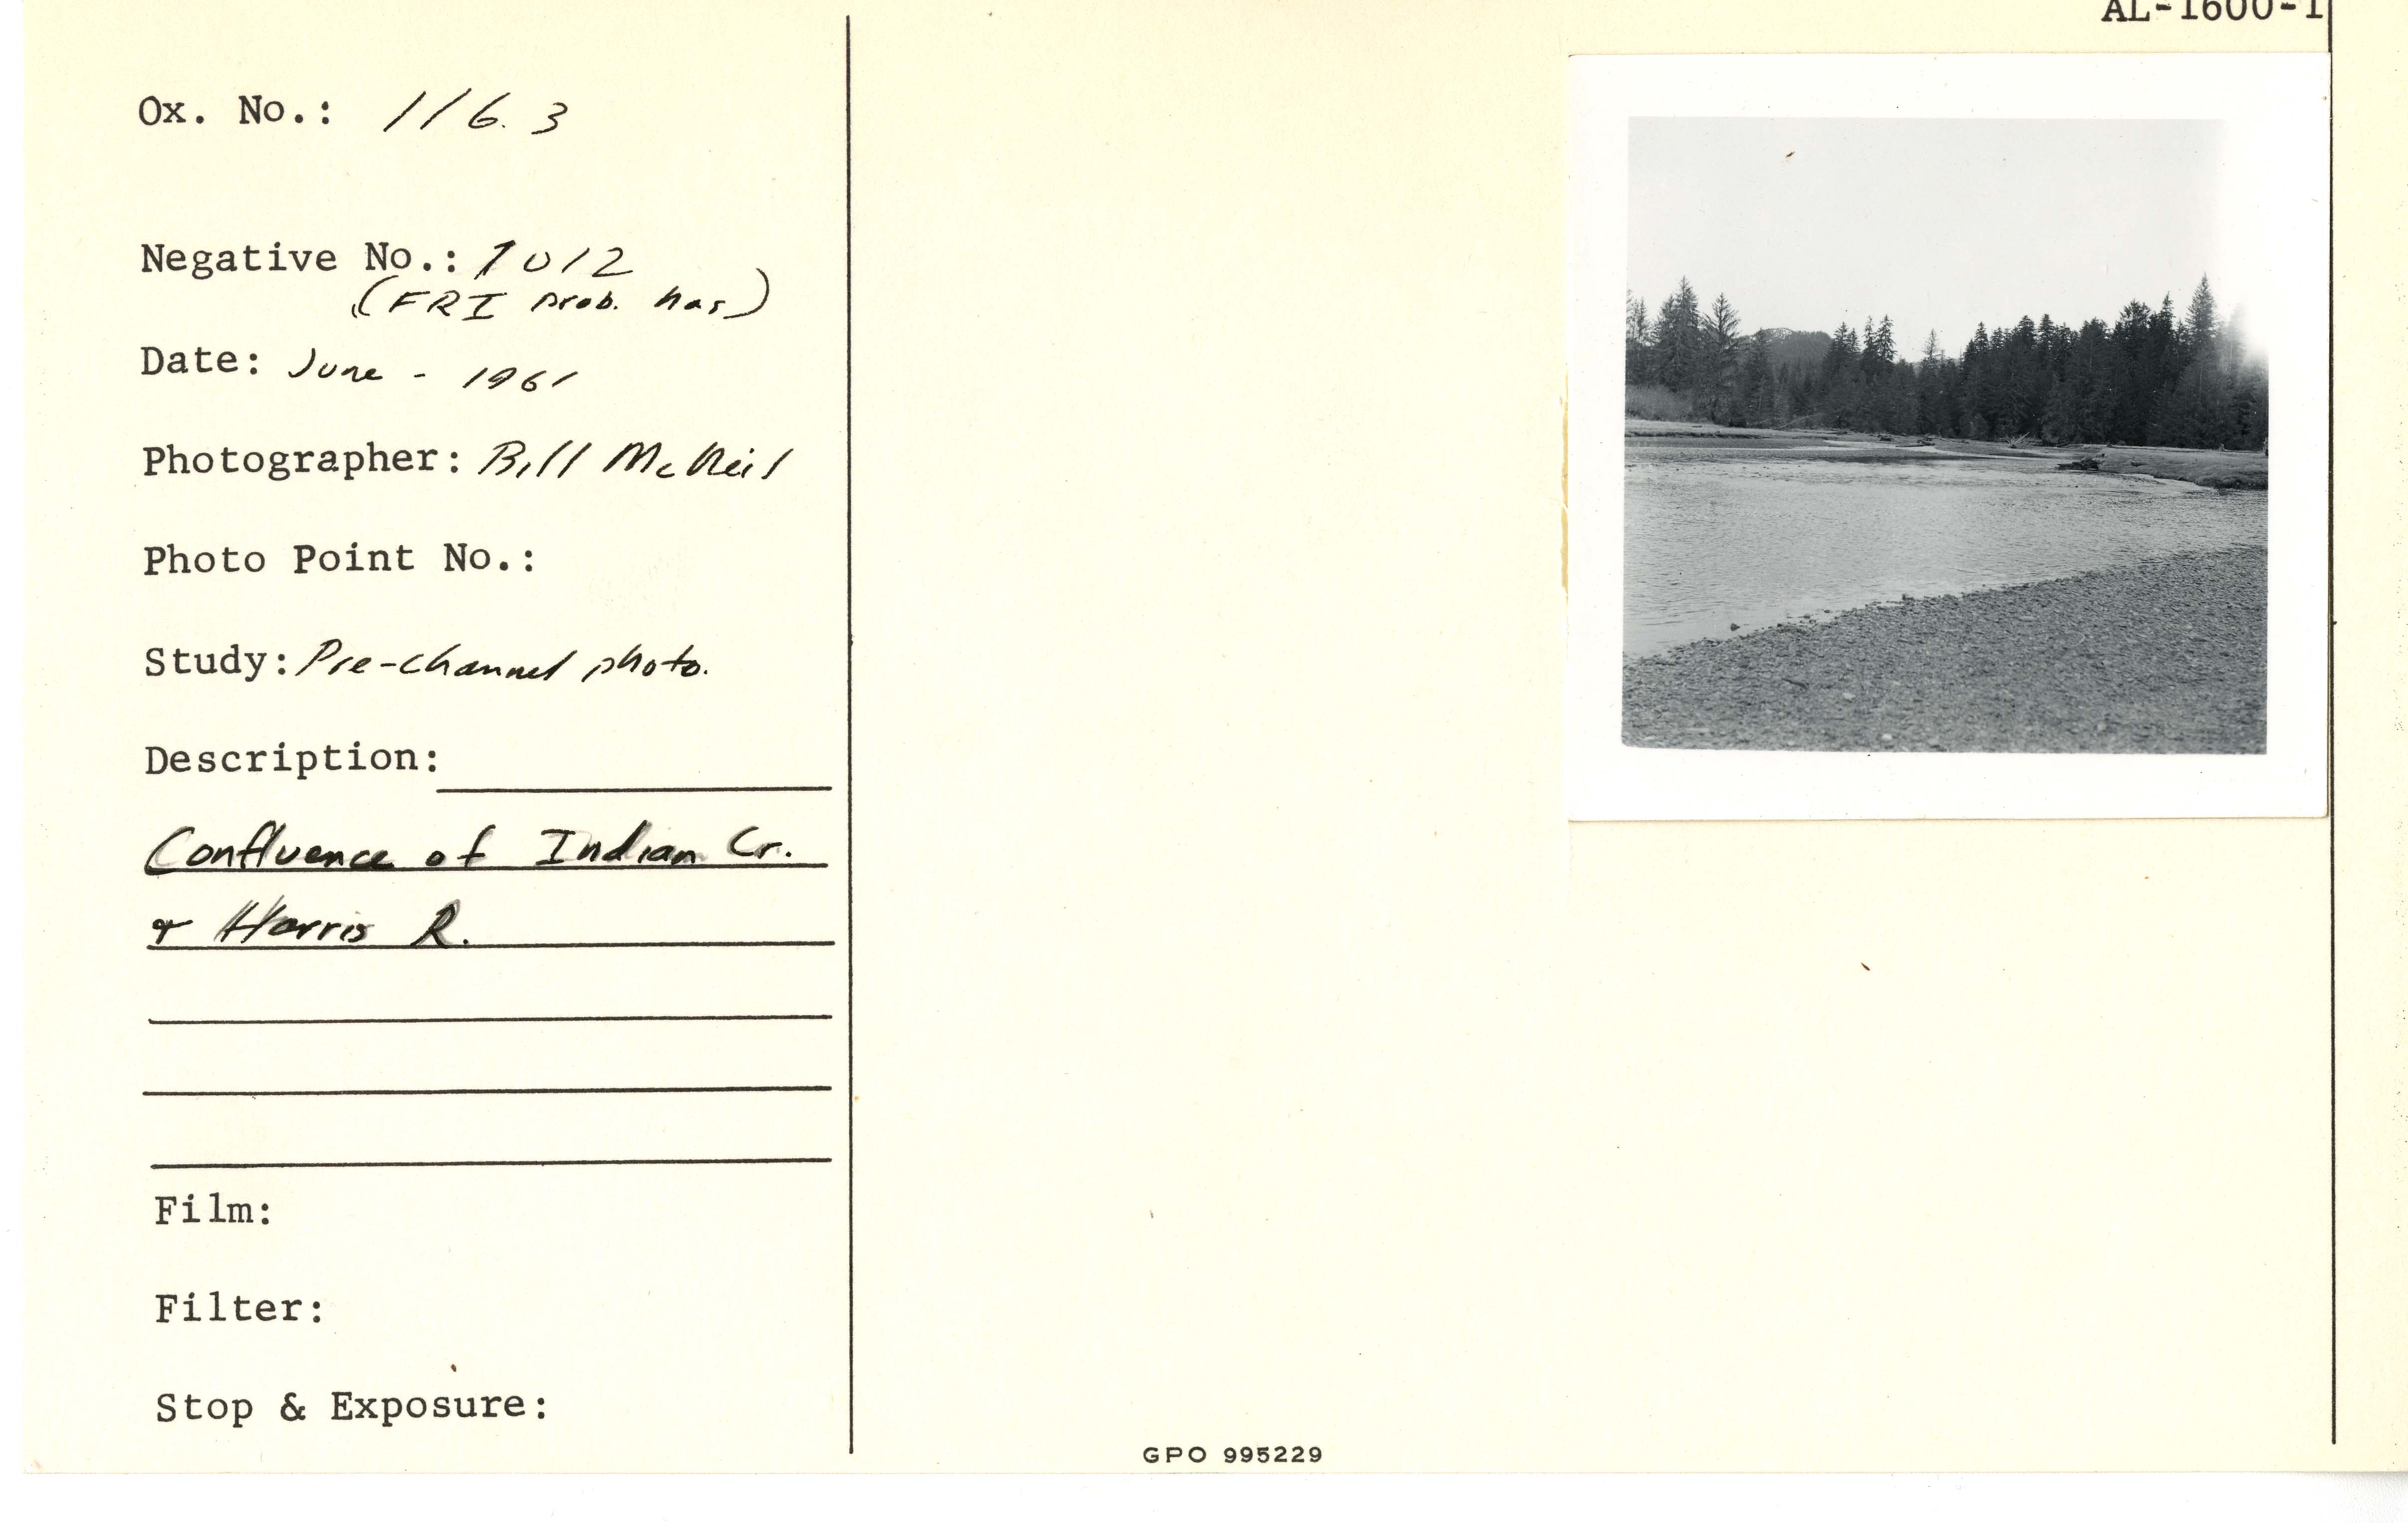 AL-1600-1
Ox. No.: 116.3
Negative No.: 7012
(FRI prob. has)
Date: June - 1961
Photographer: Bill McNeil
Photo Point No.:
Study: Pre-channel photo.
Description:
Confluence of Indian Cr.
& Harris R.
Film:
Filter:
Stop & Exposure:
GPO 995229